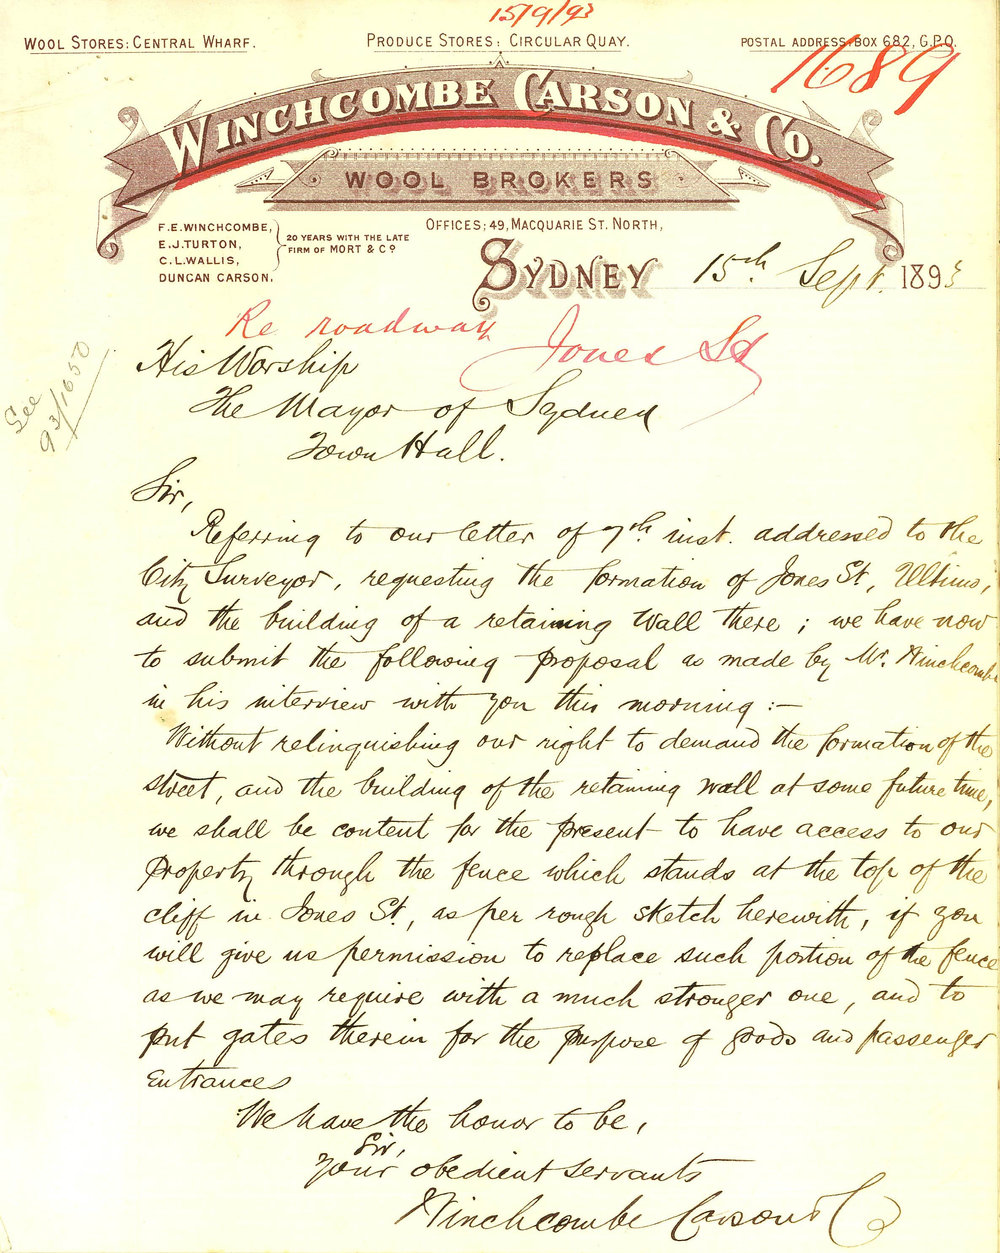 15/9/93
WOOL STORES: CENTRAL WHARF.
PRODUCE STORES: CIRCULAR QUAY.
POSTAL ADDRESS: BOX 682, G.P.O.
1689
WINCHCOMBE CARSON & CO.
WOOL BROKERS
F.E.WINCHCOMBE,
E.J.TURTON,
C.L.WALLIS,
DUNCAN CARSON,
20 YEARS WITH THE LATE
FIRM OF MORT & Co
OFFICES: 49, MACQUARIE ST. NORTH,
SYDNEY 15th Sept. 1893
Re roadway Jones St
See
93/1650
His Worship
The Mayor of Sydney
Town Hall.
Sir,
Referring to our letter of 7th inst. addressed to the
City Surveyor, requesting the formation of Jones St, Ultimo,
and the building of a retaining wall there; we have now
to submit the following proposal as made by Mr. Winchcombe
in his interview with you this morning :-
Without relinquishing our right to demand the formation of the
street, and the building of the retaining wall at some future time,
we shall be content for the present to have access to our
property through the fence which stands at the top of the
cliff in Jones St, as per rough sketch herewith, if you
will give us permission to replace such portion of the fence
as we may require with a much stronger one, and to
put gates therein for the purpose of goods and passenger
entrances
We have the honor to be,
Sir,
Your obedient servants
Winchcombe Carson & Co